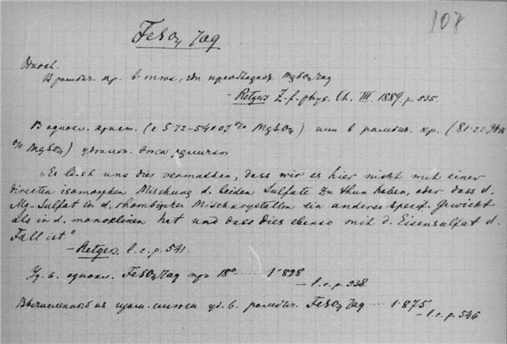 107
FeSO4 7aq
Однокл.
В ромбич. кр. в тех, где преобладает MgSO4 7aq
- Retgers Z. f. phys. Ch. III. 1889 p. 535.
В однокл. крист. (с 5.72-54.07 % MgSO4) или в ромбич. кр. (81.22-
% MgSO4)
"Es lässt uns dies vermuthen, dass wir es hier nicht mit einer
directen isomorphen Mischung d. beiden Sulfate zu thun haben, aber dass d.
Mg-Sulfat in d. rhombischen Mischkrystallen ein anderes specif. Gewicht
als in d. monoklinen hat und dass dies ebenso mit d. Eisensulfat d.
Fall ist"
- Retgers l. c. p. 541.
Уд. в. однокл. FeSO4 7aq при 18° 1.898
- l. c. p. 538
Вычисленный из уд. в. ромбич. FeSO4 7aq 1.875
- l. c. p. 546